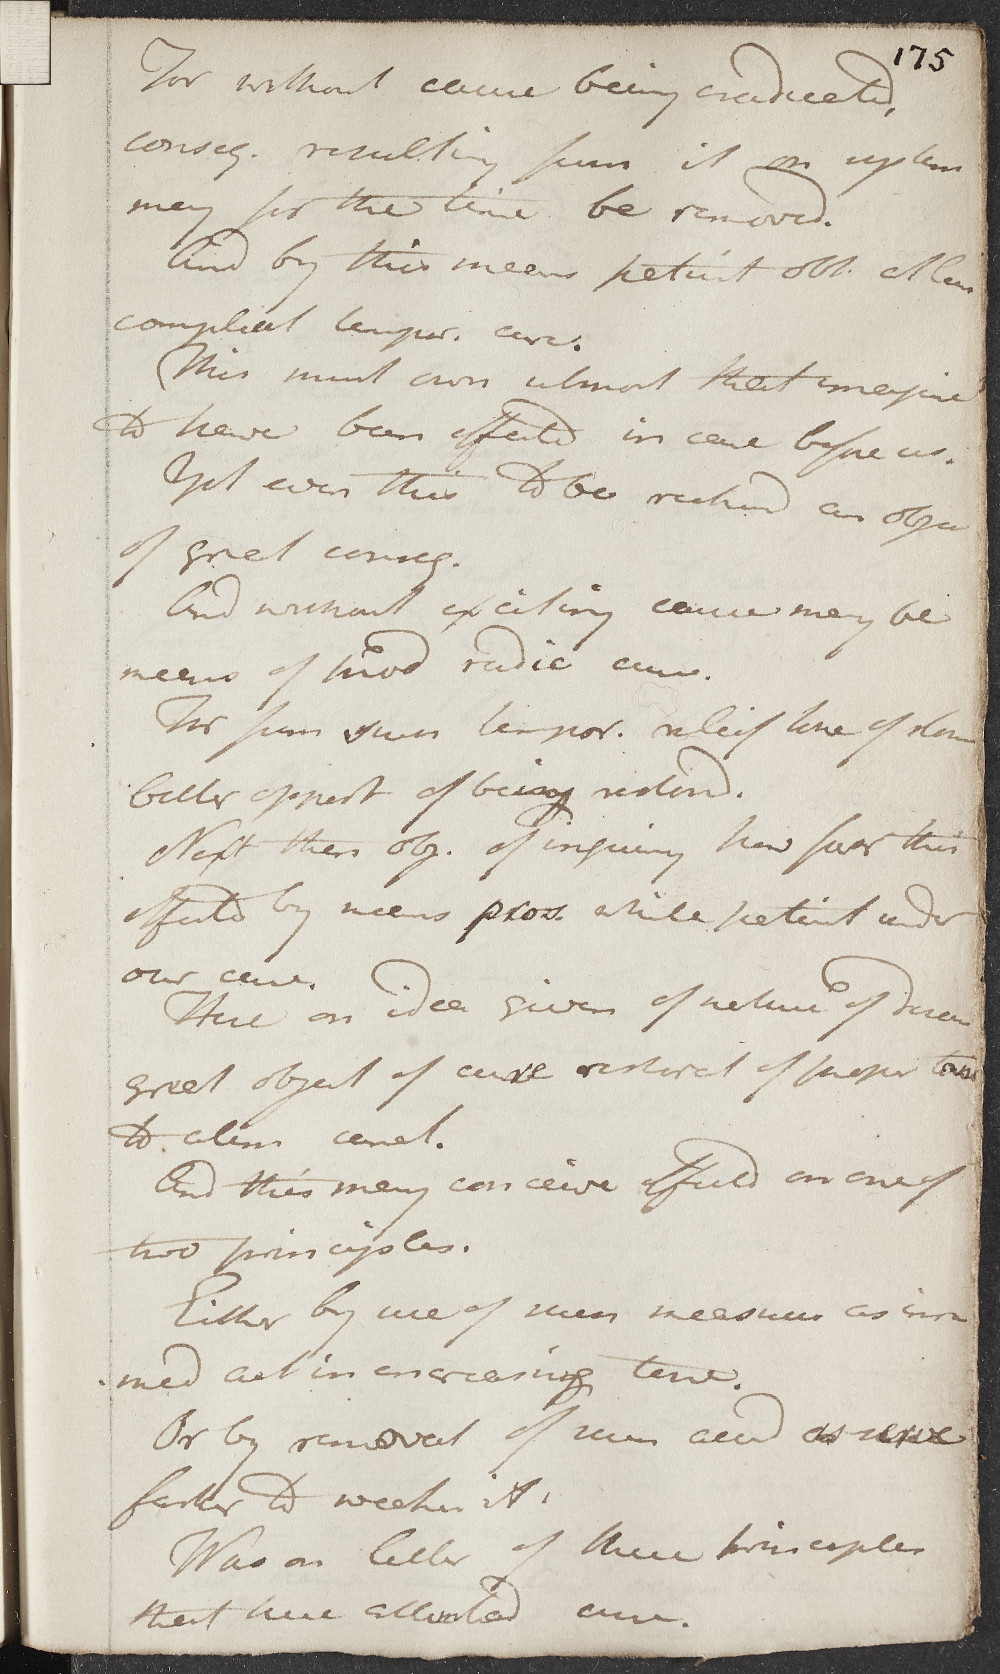 175
For without cause being eradicated,
conseq. resulting from it on system
may for the time be removed.
And by this means patient obt. at least
compleat tempor. cure.
This must own almost that imagine
to have been effected in case before us.
Yet even this to be reckoned an objec
of great conseq.
And without exciting cause may be
means of prod radic cure.
For from even tempor. releif tone of stom
better opport of being restord.
Next then obj. of inquiry how far this
effected by means pros. while patient under
our care.
Here on idea given of nature of disease
great object of cure restorat of proper tone
to alim canal.
And this may conceive effected on one of
two principles.
Either by use of such measures as imm
med act in encreasing tone.
Or by removal of such acid as serve
farther to weaken it.
Was on latter of these principles
that here attempted cure.